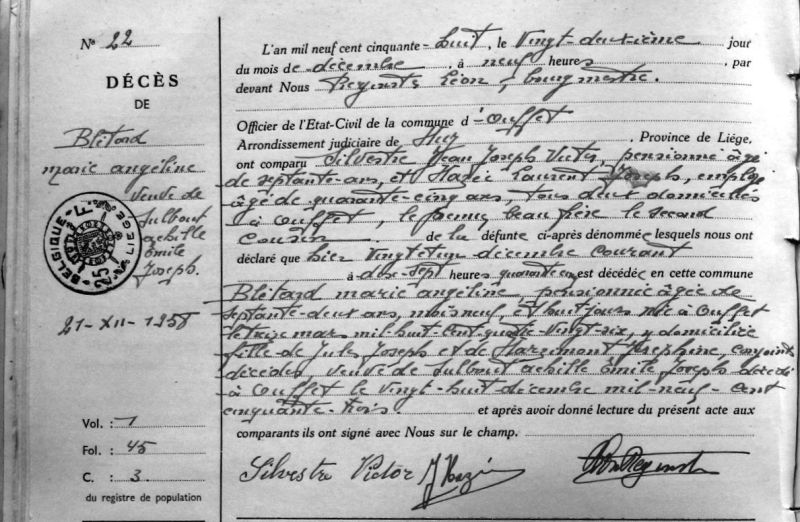 N° 22
DÉCÈS
DE
Blétard
marie angéline
veuve de
Achille
Émile
Joseph.
BELGIQUE
LIEGE
25 F
21-XII-1958
Vol. : 1
Fol. : 45
C. : 3
du registre de population
L'an mil neuf cent cinquante-huit, le vingt-deuxième jour
du mois de décembre, à neuf heures, par
devant Nous Léon, bourgmestre.
Officier de l'Etat-Civil de la commune d'Ouffet
Arrondissement judiciaire de Huy, Province de Liége,
ont comparu Silvestre Jean Joseph Victor, pensionné âgé
de septante-ans, et Hazée Laurent Joseph, employé
âgé de quarante-cinq ans, tous deux domiciliés
à Ouffet, le premier beau-frère le second
cousin de la défunte ci-après dénommée lesquels nous ont
déclaré que hier vingt et un décembre courant
à dix-sept heures quarante est décédée en cette commune
Blétard marie angéline, pensionnée âgée de
septante-deux ans, mois neuf, et huit jours née à Ouffet
le treize mars mil huit cent quatre-vingt-six, y domiciliée
fille de Jules Joseph et de Joséphine, conjoints
décédés, veuve de achille Émile Joseph décédé
à Ouffet le vingt-huit décembre mil-neuf-cent
cinquante-trois et après avoir donné lecture du présent acte aux
comparants ils ont signé avec Nous sur le champ.
Silvestre Victor